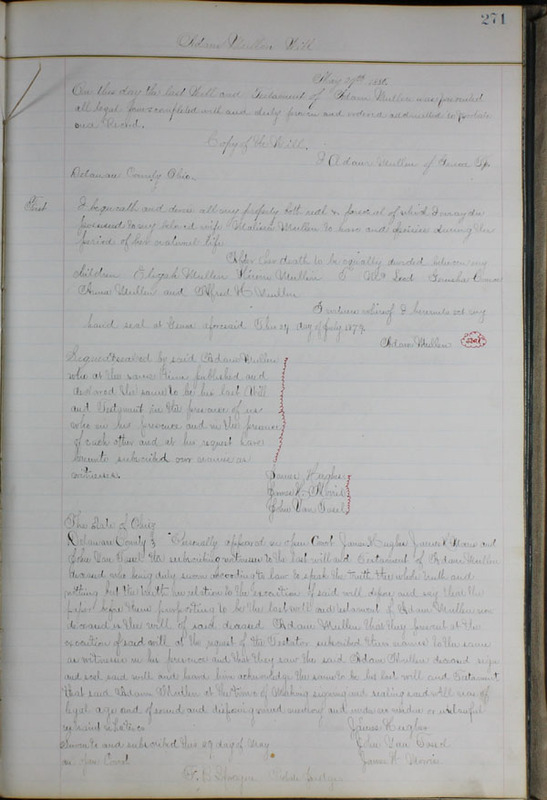 271
Adam Mullen Will
May 29th 188
On this day the last Will and Testament of Adam Mullen was presented
all legal forms complied with and duly proven and ordered admitted to probate
and Record.
Copy of the Will.
I Adam Mullen of Genoa Tp
Delaware County Ohio.
First I bequeath and devise all my property both and of which I may die
possessed to my beloved wife Mullen to have and during the
period of her natural life
After her death to be equally divided between my
children Elizah Mullen Mullen
Anna Mullen and Alfred H Mullen
I hereunto set my
hand seal at Genoa aforesaid this 24 day of July 1879.
Adam Mullen Seal
Signed sealed by said Adam Mullen
who at the same time published and
declared the same to be his last Will
and Testament in the presence of us
who in his presence and in the presence
of each other and at his request have
hereunto subscribed our names as
witnesses.
James Hughes
James W.
John Van Tasel
The State of Ohio
Delaware County Personally appeared in open Court James Hughes James W and
John Van Tasel the subscribing witnesses to the last will and Testament of Adam Mullen
deceased who being duly sworn according to law to speak the truth the whole truth and
nothing but the truth in relation to the execution of said will depose and say that the
paper before them purporting to be the last will and testament of Adam Mullen now
deceased is the will of said deceased Adam Mullen that they present at the
execution of said will at the request of the Testator subscribed their names to the same
as witnesses in his presence and that they saw the said Adam Mullen deceased sign
and seal said will and heard him acknowledge the same to be his last will and Testament
that said Adam Mullen at the time of making signing and sealing said will was of
legal age and of sound and disposing mind memory and under no undue or unlawful
restraint whatever
James Hughes
Sworn to and subscribed this 29 day of May John Van Tasel
in open Court James W
F. B. Probate Judge